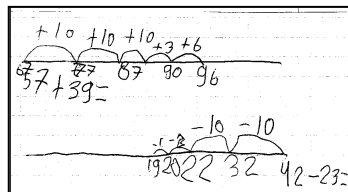 +10 +10 +10 +3 +6
67 77 87 90 96
57+39=
-1 -2 -10 -10
19 20 22 32 42-23=